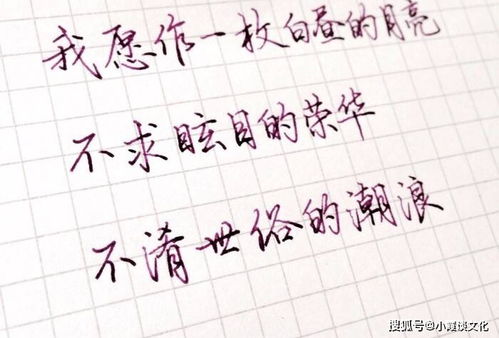 我愿作一枚白昼的月亮
不求眩目的荣华
不淆世俗的潮浪
搜狐号@小霞谈文化